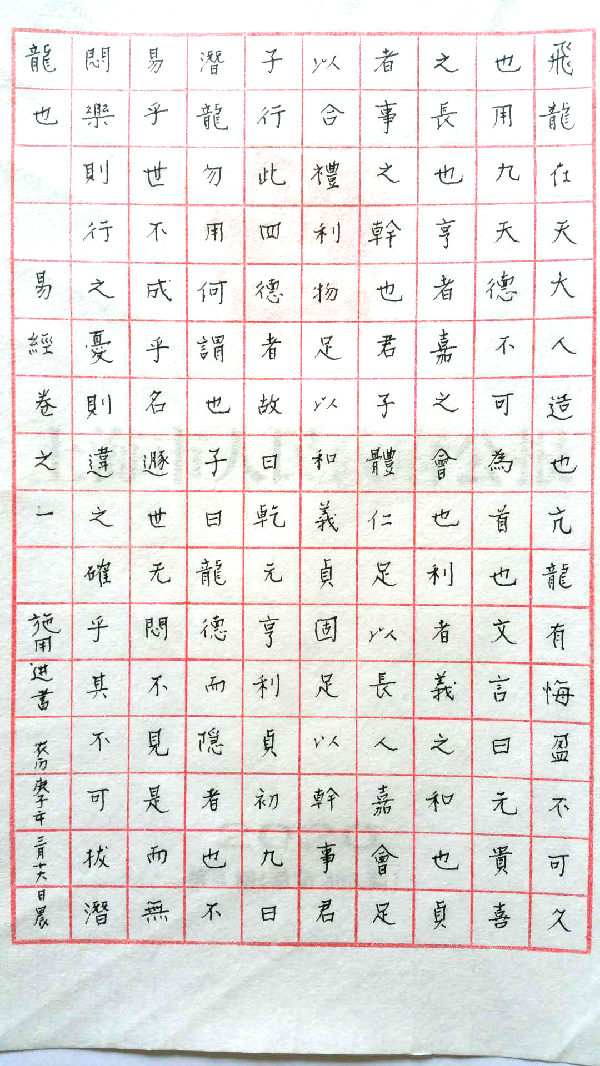 飛龍在天大人造也亢龍有悔盈不可久
也用九天德不可為首也文言曰元貴喜
之長也亨者嘉之會也利者義之和也貞
者事之幹也君子體仁足以長人嘉會足
以合禮利物足以和義貞固足以幹事君
子行此四德者故曰乾元亨利貞初九曰
潛龍勿用何謂也子曰龍德而隱者也不
易乎世不成乎名遯世无悶不見是而無
悶樂則行之憂則違之確乎其不可拔潛
龍也 易經卷之一 施用進書 农历庚子年三月廿六日晨